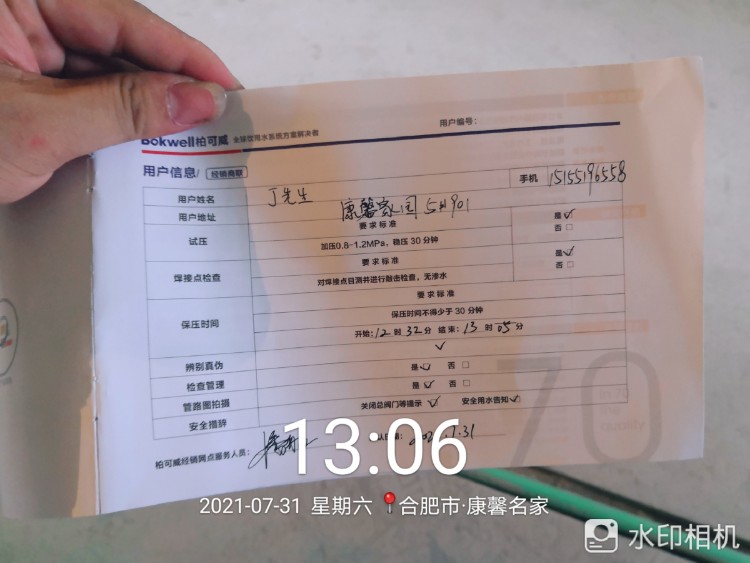 Bokwell柏可威 全球饮用水系统方案解决者
用户编号：
用户信息/ 经销商联
用户姓名 丁先生 手机 15155196558
用户地址 康馨家园 5#901
试压 要求标准 是☑
加压0.8-1.2MPa，稳压 30 分钟 否□
焊接点检查 要求标准 是☑
对焊接点目测并进行敲击检查，无渗水 否□
保压时间 要求标准
保压时间不得少于 30 分钟
开始：12 时 32 分 结束：13 时 05 分
辨别真伪 ✓
检查管理 是☑ 否□
管路图拍摄 是☑ 否□
安全措辞 关闭总阀门等提示 ☑ 安全用水告知 ☑
柏可威经销网点服务人员：
70
13:06
2021-07-31 星期六 合肥市·康馨名家
水印相机